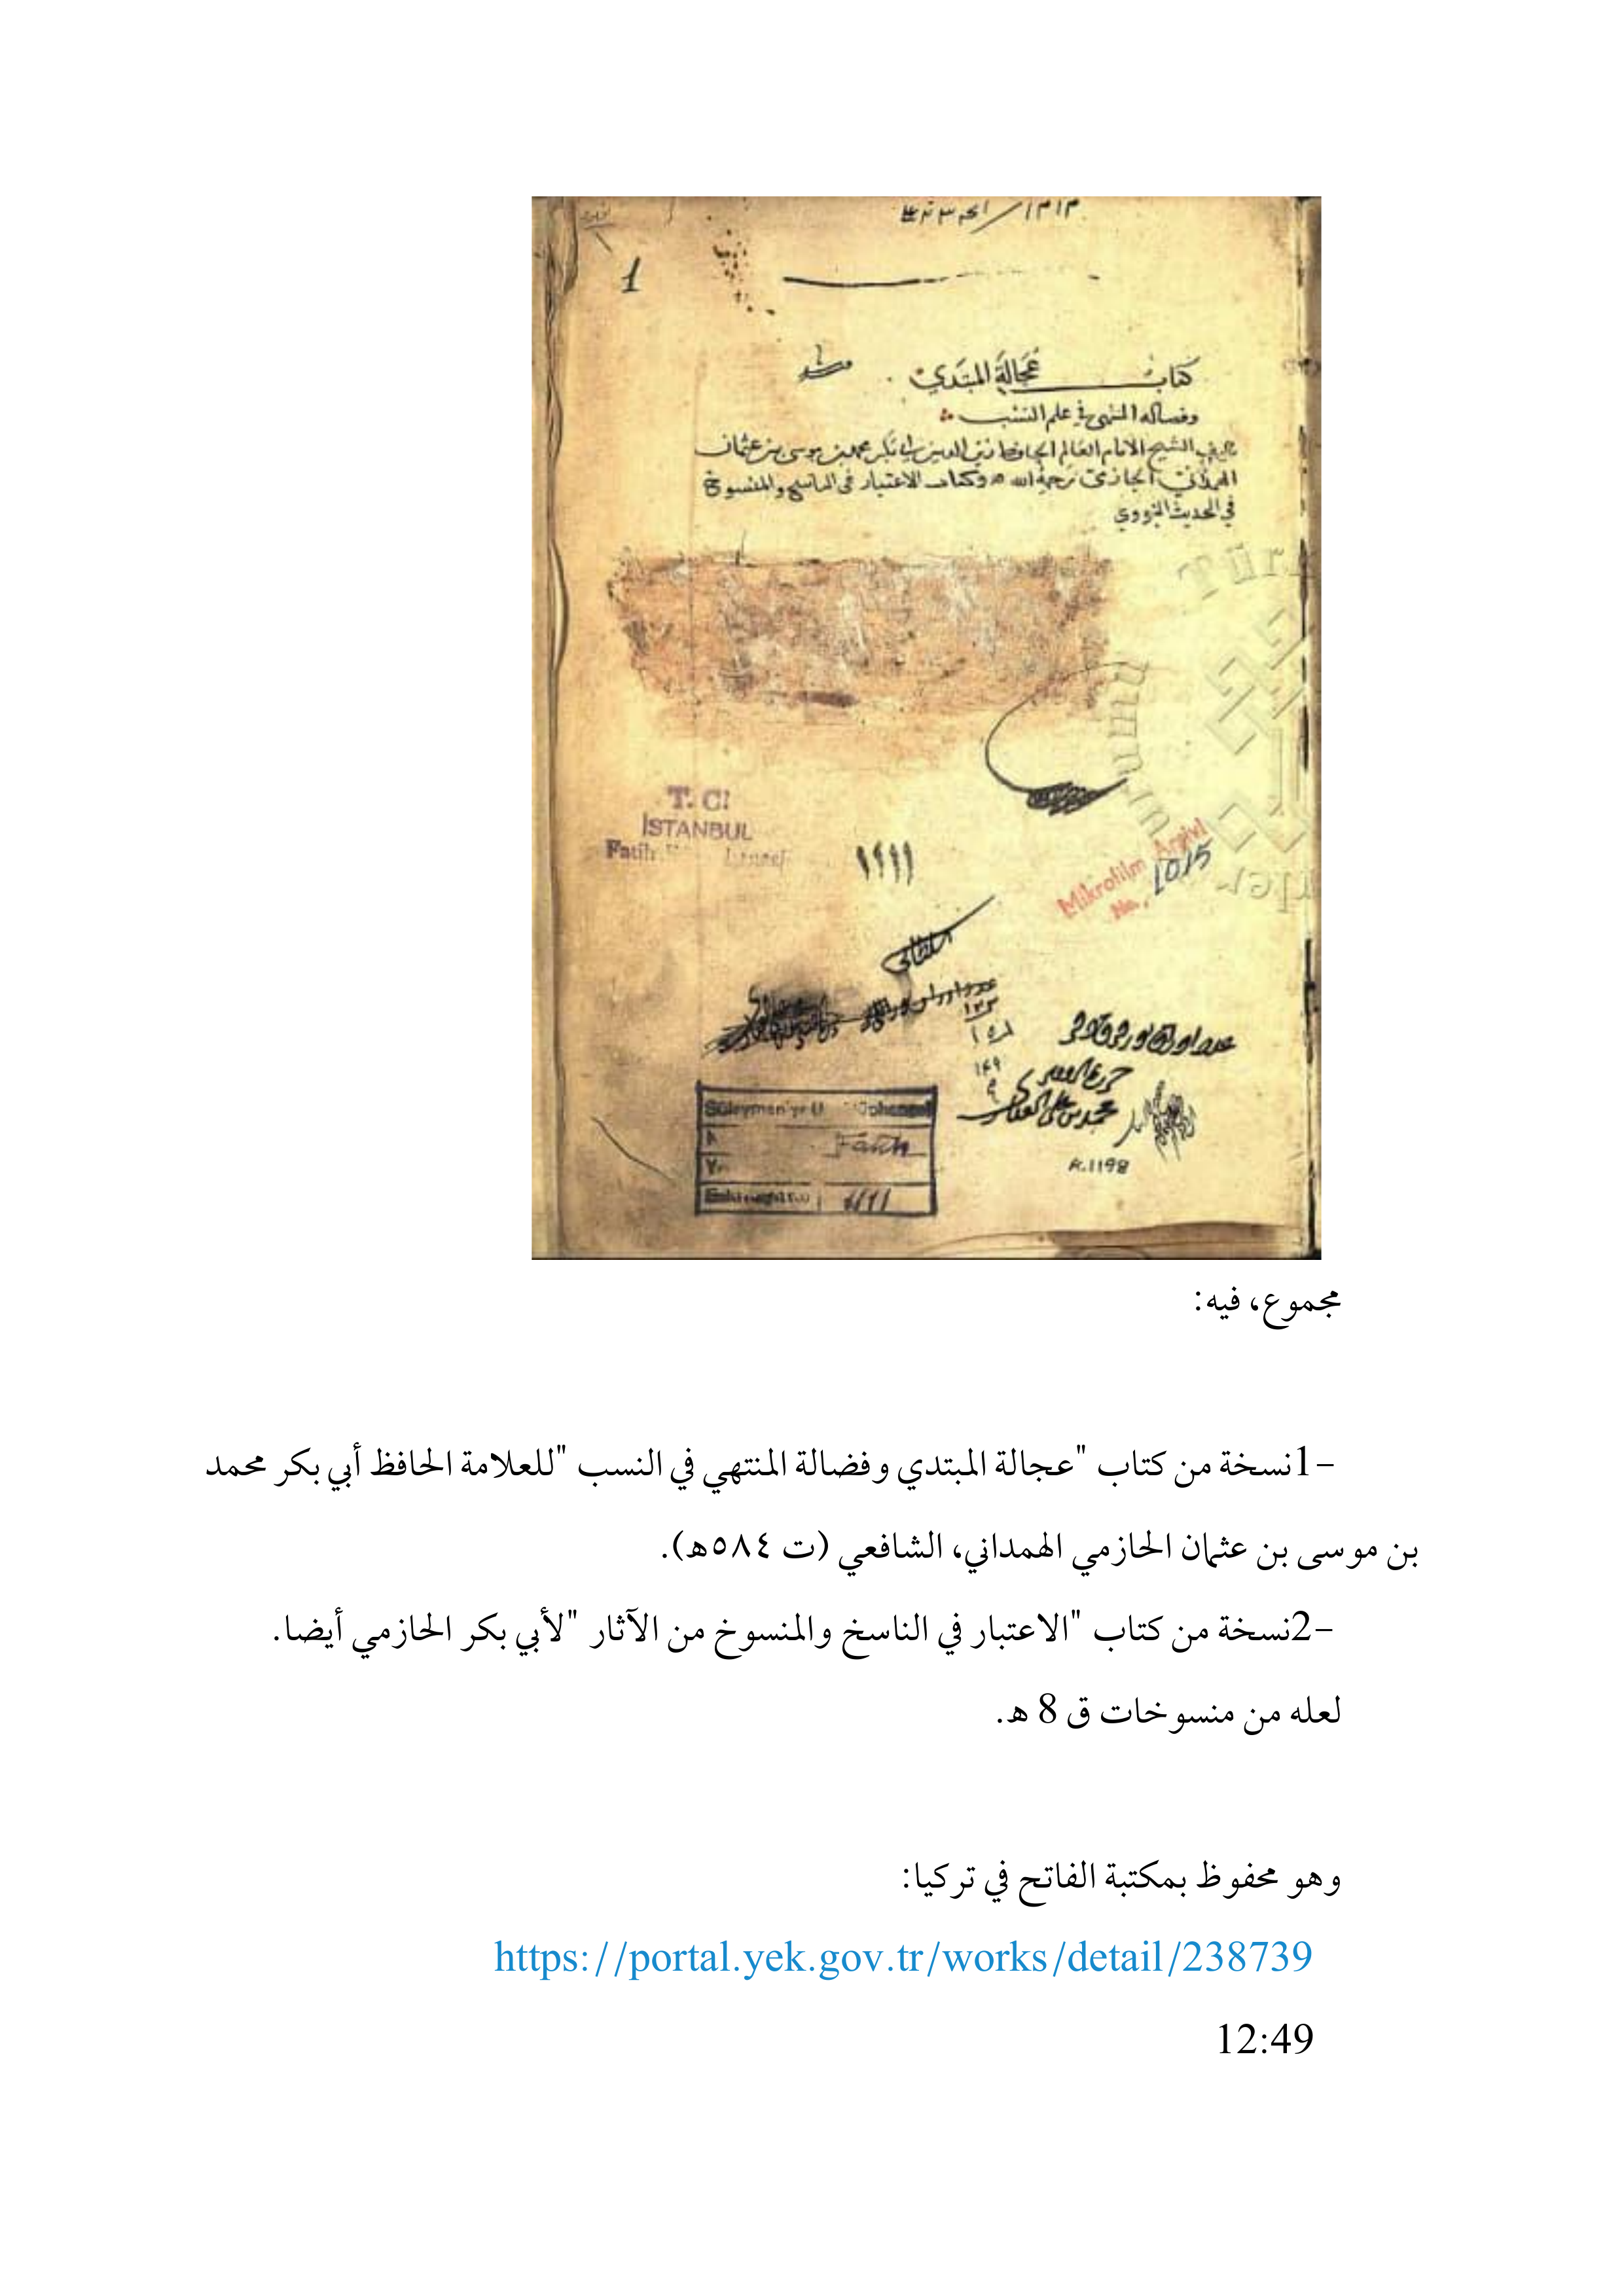 1
كتاب عُجَالَة المبتَدي
وفضاله المنتهي في علم النسب
تاليف الشيخ الامام العالم الحافظ زين الدين ابي بكر محمد بن موسى بن عثمان
الهمداني الحازمي رحمه الله وكتاب الاعتبار في الناسخ والمنسوخ
في الحديث النبوي
T. C.
İSTANBUL
Fatih
١١١١
Mikrofilm Arşivi
No. 1015
السلطاني
عدد اوراق
١٣٢
١٥١
١٤٩
محمد بن علي
K.1198
Fatih
مجموع، فيه:
-1نسخة من كتاب "عجالة المبتدي وفضالة المنتهي في النسب "للعلامة الحافظ أبي بكر محمد
بن موسى بن عثمان الحازمي الهمداني، الشافعي (ت ٥٨٤ه).
-2نسخة من كتاب "الاعتبار في الناسخ والمنسوخ من الآثار "لأبي بكر الحازمي أيضا.
لعله من منسوخات ق 8 ه.
وهو محفوظ بمكتبة الفاتح في تركيا:
https://portal.yek.gov.tr/works/detail/238739
12:49